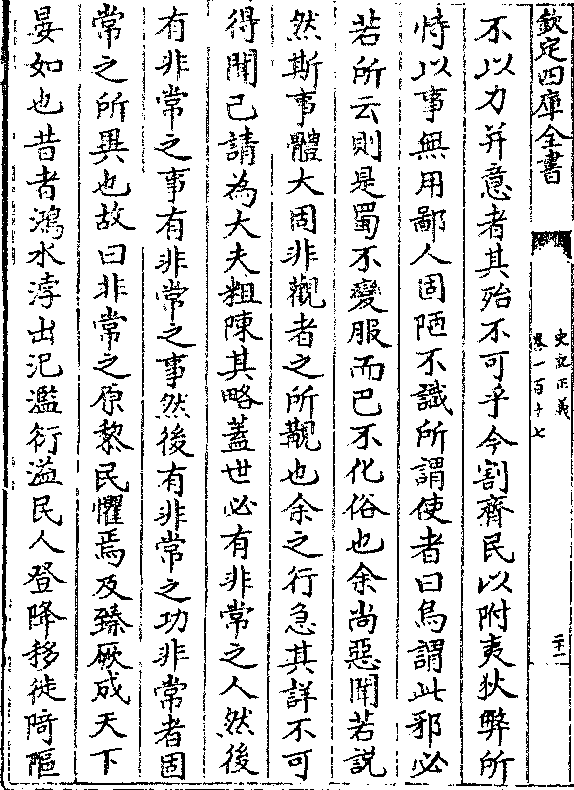 欽定四庫全書
史記正義
卷一百十七
不以力并意者其殆不可乎今割齊民以附夷狄弊所
恃以事無用鄙人固陋不識所謂使者曰烏謂此邪必
若所云則是蜀不變服而巴不化俗也余尚惡聞若説
然斯事體大固非觀者之所覯也余之行急其詳不可
得聞已請為大夫粗陳其略蓋世必有非常之人然後
有非常之事有非常之事然後有非常之功非常者固
常之所異也故曰非常之原黎民懼焉及臻厥成天下
晏如也昔者鴻水浡出氾濫衍溢民人登降移徙陭䧢